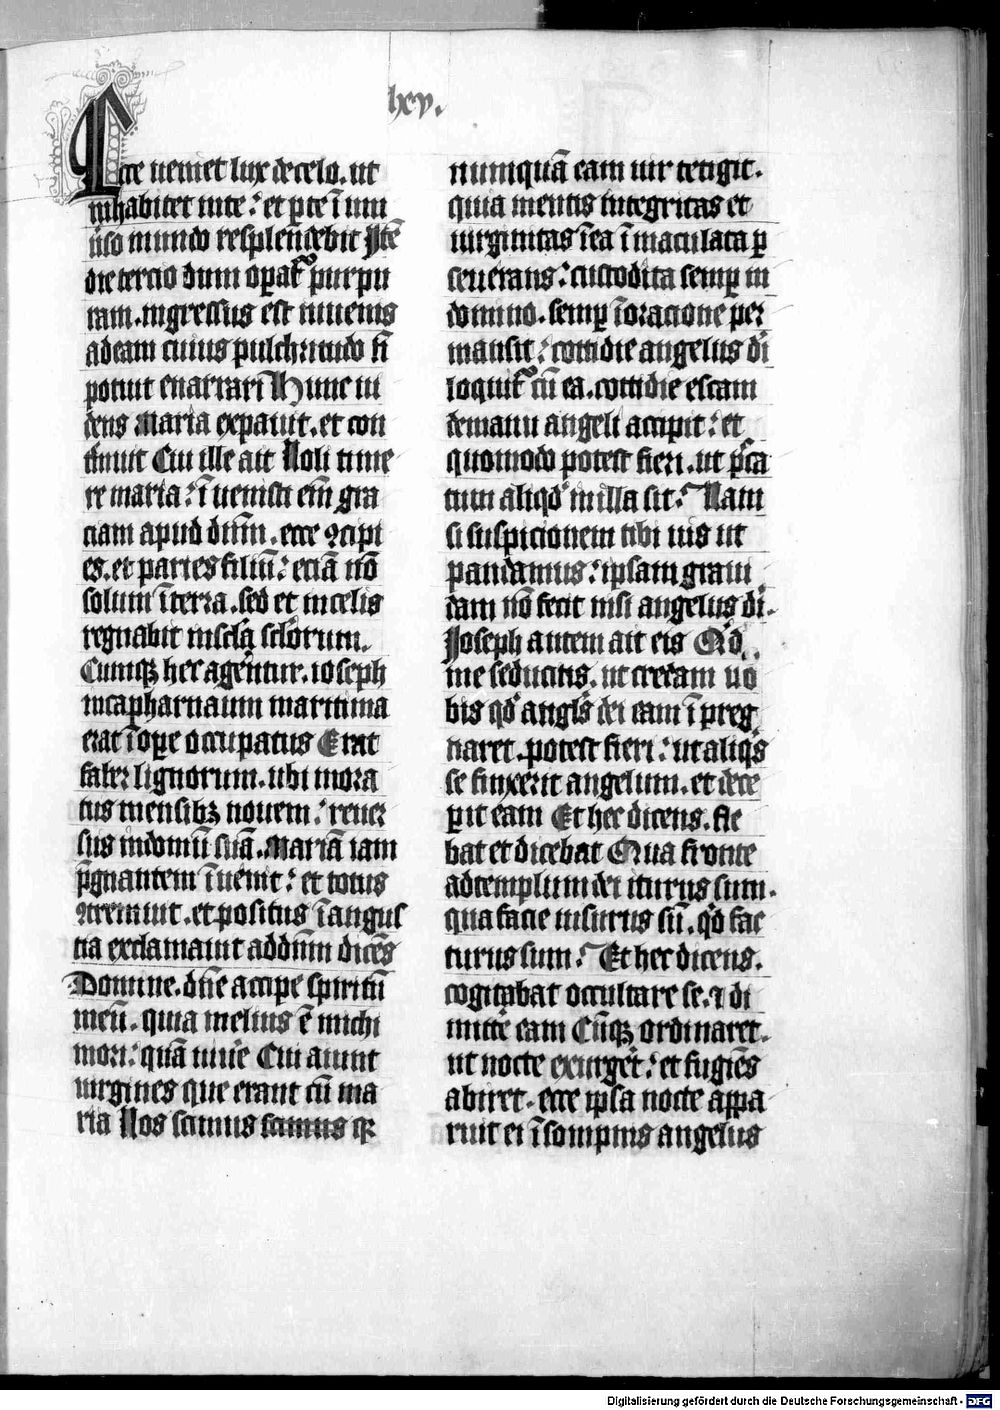 lxv.
Ecce ueniet lux de celo. ut
inhabitet in te. et p̱ te ī uni
ũso mundo resplendebit Itē
die tercio dum opat᷑ purpu
ram. ingressus est iuuenis
ad eam cuius pulchritudo n̄
potuit enarrari Hunc ui
dens Maria expauit. et con
tͥmuit Cui ille ait Noli time
re maria. īuenisti em̄ gra
ciam apud dm̄. ecce ꝯcipi
es. et paries filiū. eciā nō
solum ī terra. sed et in celis
regnabit in scl̄a scl̄orum.
Cumqꝫ hec agerentur. ioseph
in capharnaum maritima
erat ī oꝑe occupatus Erat
faber lignorum. ubi mora
tus mensibꝫ nouem. reuer
sus in domū suā. Mariā iam
p̄gnantem īuenit. et totus
ꝯtremuit. et positus ī angus
tia exclamauit ad dn̄m dicēs
Domine. dn̄e accipe spiritū
meū. quia melius ē michi
mori. quā uiuͤe Cui aiunt
uirgines que erant cū ma
ria Nos scimus scimus qꝛ
numquā eam uir tetigit.
quia mentis integritas et
uirginitas ī ea īmaculata ꝑ
seuerans. custodita semꝑ in
domino. semꝑ ī oracione per
mansit. cottidie angelus dī
loquit᷑ cū ea. cottidie escam
de manu angeli accipit. et
quomodo potest fieri. ut p̄ca
tum aliqd̄ in illa sit. Nam
si suspicionem tibi uis ut
pandamus. ipsam graui
dam nō fecit nisi angelus dī.
Joseph autem ait eis Qͥd
me seducitis. ut credam uo
bis qd̄ angl̄s dei eam ī preg
naret. potest fieri. ut aliqͥs
se finxerit angelum. et dece
pit eam Et hec dicens. fle
bat et dicebat Qua fronte
ad templum dei iturus sum.
qua facie uisurus sū. qͥd fac
turus sum. Et hec dicens.
cogitabat occultare se. ⁊ di
mittͤe eam Cūqꝫ ordinaret.
ut nocte exurgͤet. et fugiēs
abiret. ecce ipsa nocte appa
ruit ei ī sompnis angelus
Digitalisierung gefördert durch die Deutsche Forschungsgemeinschaft - DFG